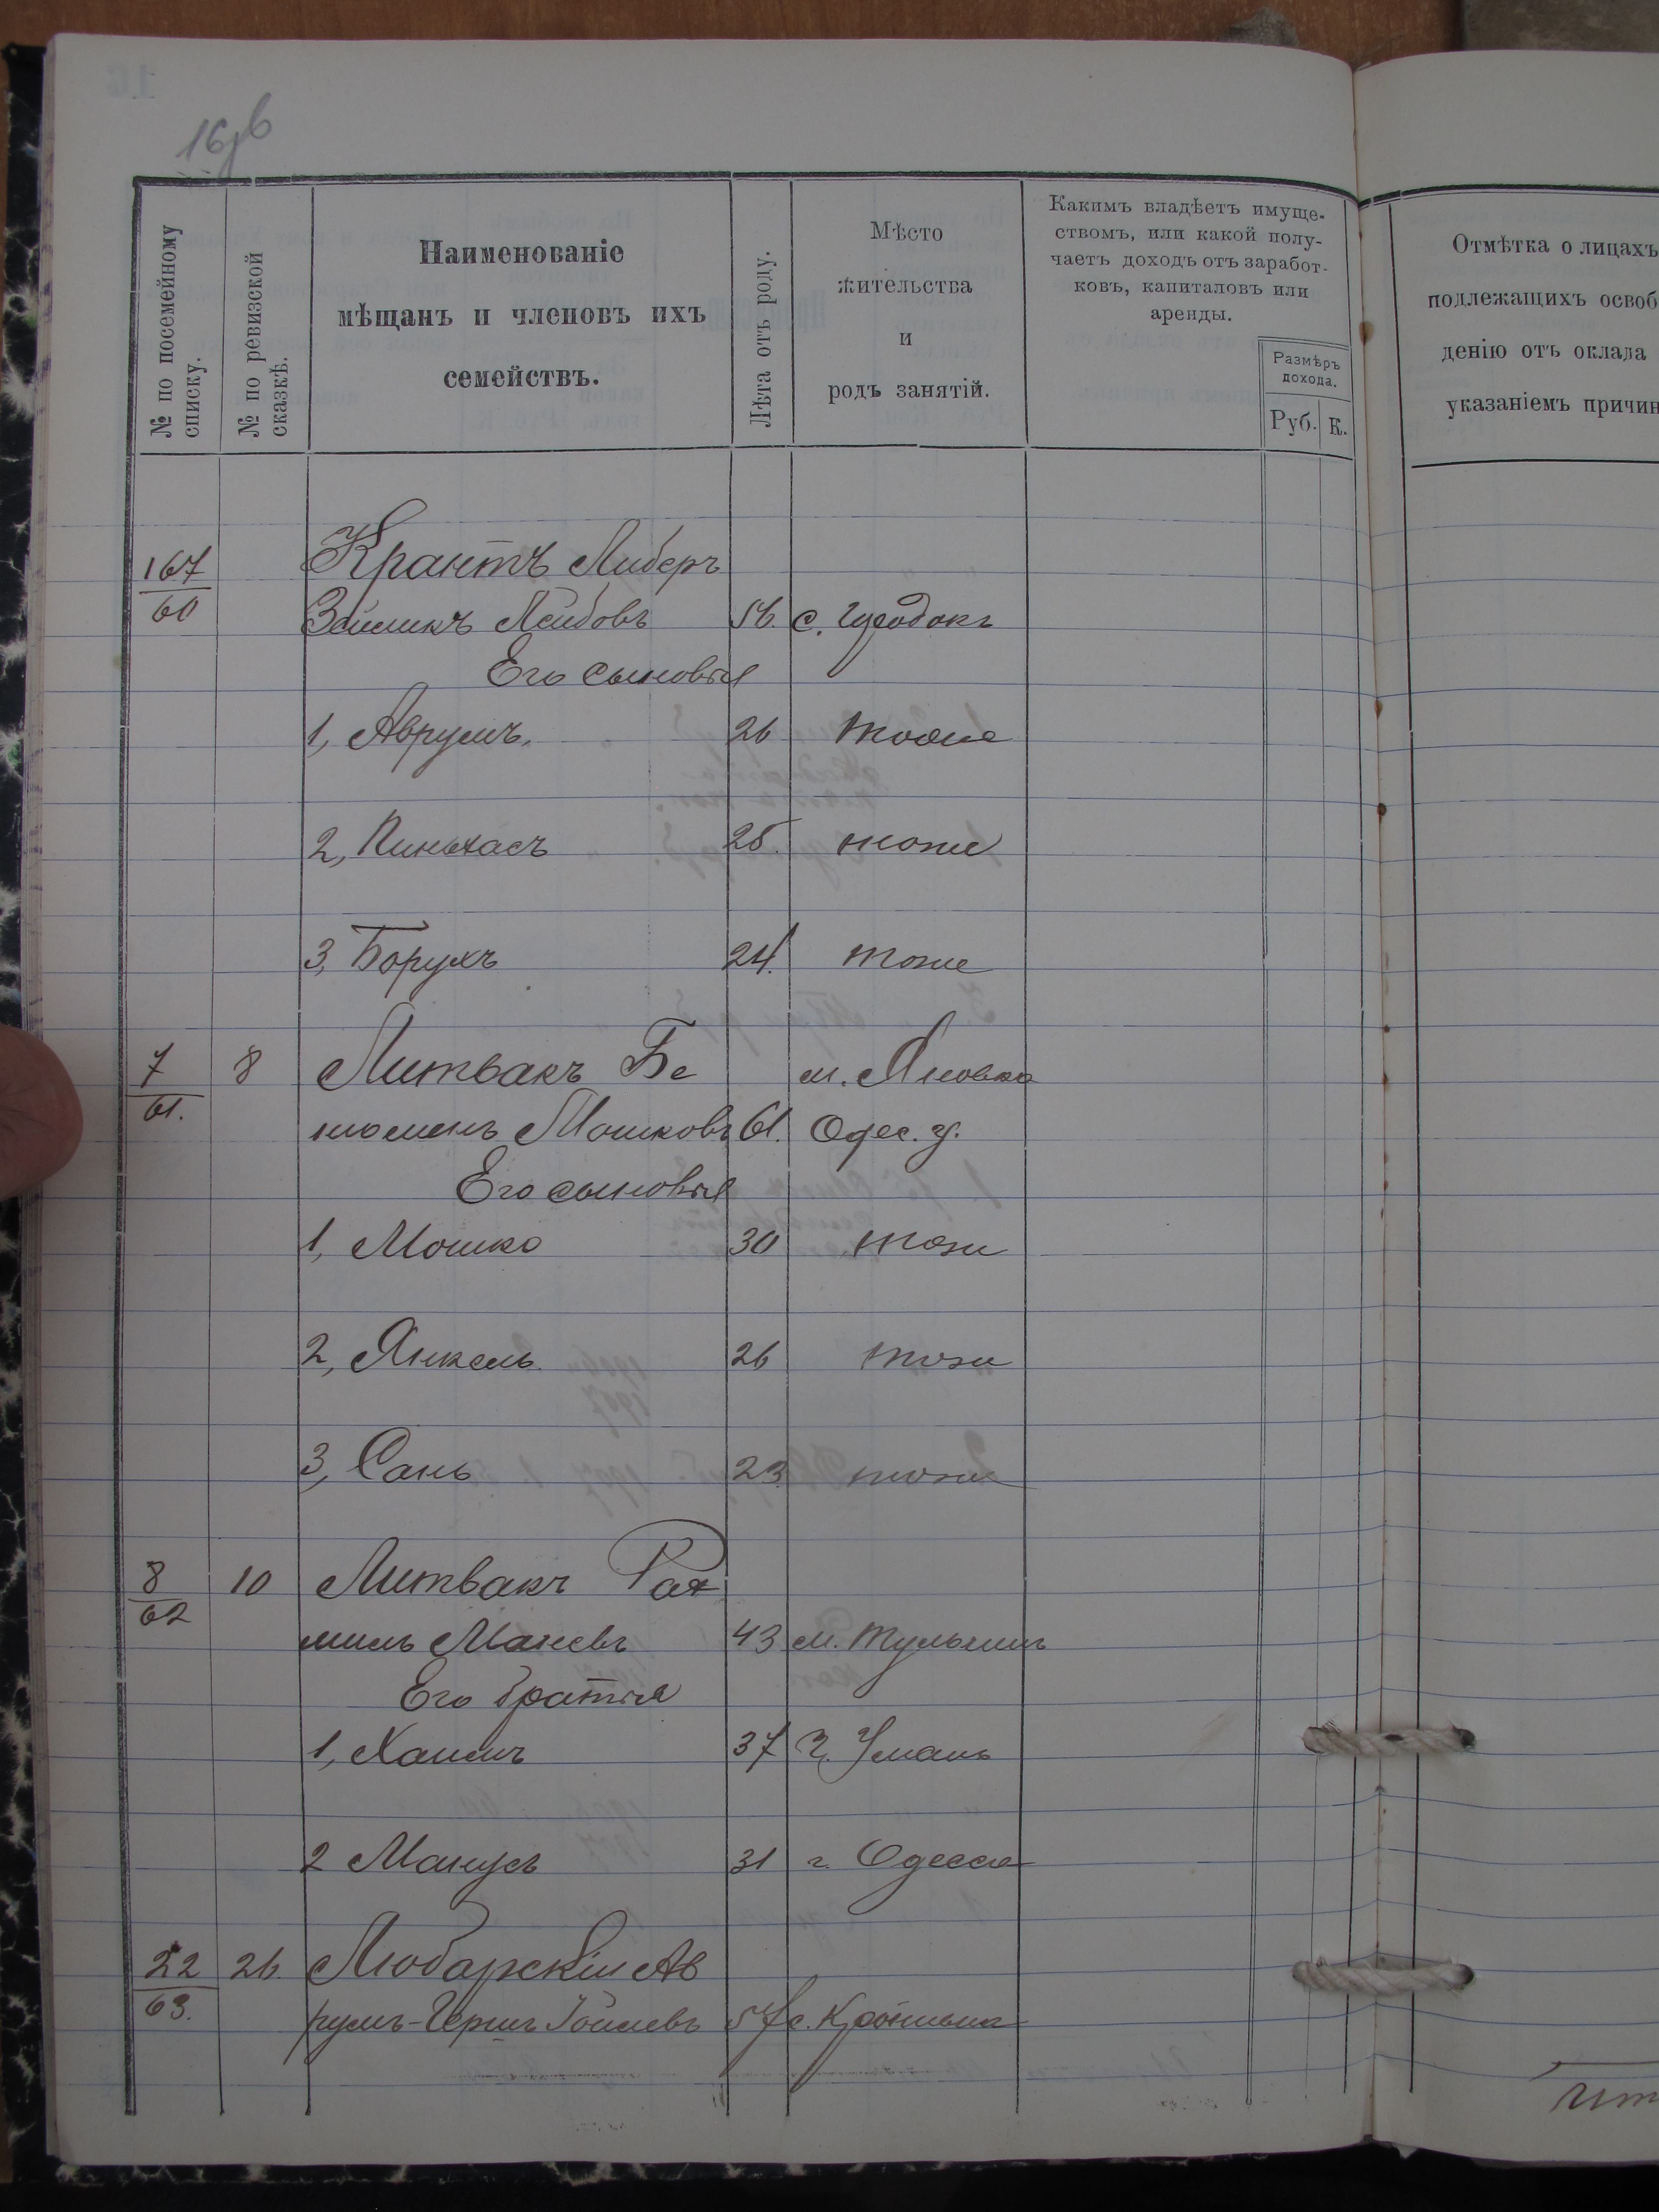 16об
№ по посемейному списку.
№ по ревизской сказкѣ.
Наименованіе
мѣщанъ и членовъ ихъ
семействъ.
Лѣта отъ роду.
Мѣсто
жительства
и
родъ занятій.
Какимъ владѣетъ имуще-
ствомъ, или какой полу-
чаетъ доходъ отъ заработ-
ковъ, капиталовъ или
аренды.
Размѣръ
дохода.
Руб. К.
Отмѣтка о лицахъ
подлежащихъ освоб
денію отъ оклада
указаніемъ причин
167 Крантъ Либеръ
60 Зейликъ Лейбовъ 56. с.
Его сыновья
1, Аврумъ. 26 тоже
2, Пиньхасъ 25. тоже
3, Борухъ 24. тоже
7 8 Литвакъ Бе м. Яновка
61. ньоменъ Мошковъ 61. Одес. у.
Его сыновья
1, Мошко 30 тоже
2, Янкель. 26 тоже
3, Сань 23. тоже
8 10 Литвакъ Рах
62 миль Маневъ 43 м. Тульчинъ
Его братья
1, Хаимъ 37 г. Умань
2 Манусъ 31 г. Одесса
22 26. Любарскій Ав
63. румъ-Гершъ Іойлевъ 57 с.